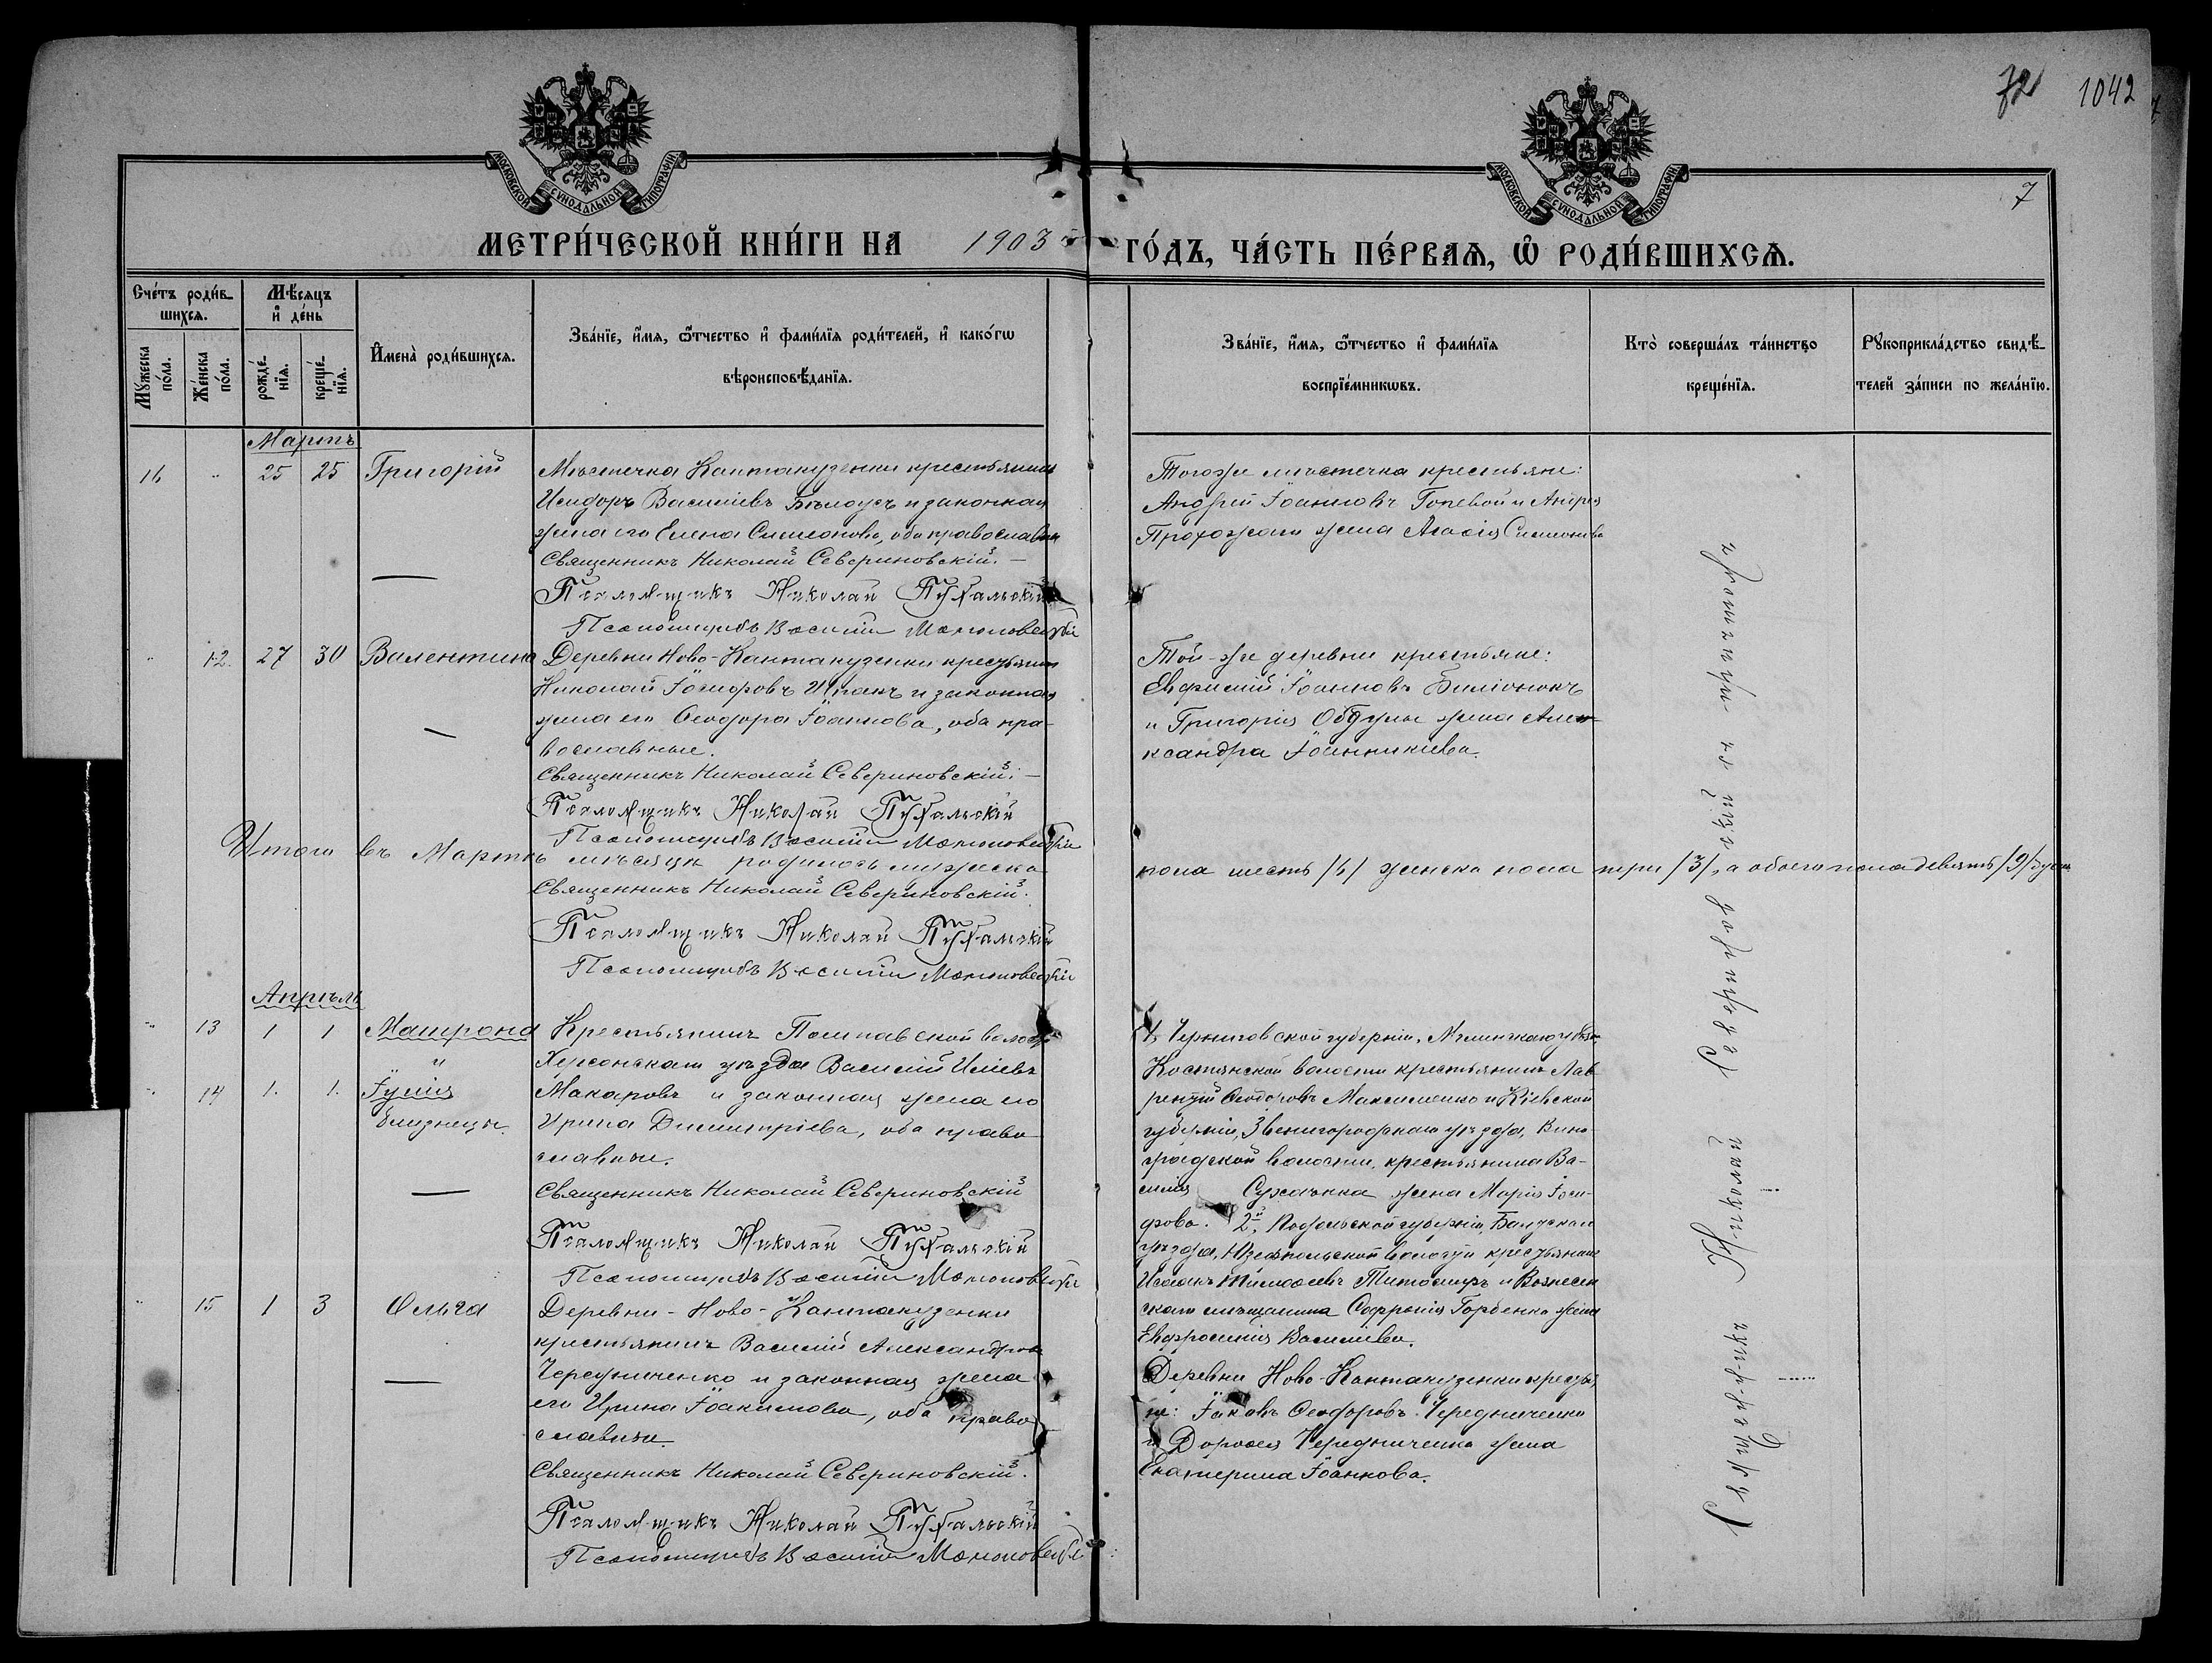 72 1042
7
МОСКОВСКОЙ СѴНОДАЛЬНОЙ ТИПОГРАФІИ.
МОСКОВСКОЙ СѴНОДАЛЬНОЙ ТИПОГРАФІИ.
МЕТРИ́ЧЕСКОЙ КНИ́ГИ НА 1903 й ГО́ДЪ, ЧА́СТЬ ПЕ́РВАѦ, Ѽ РОДИ́ВШИХСѦ.
Сче́тъ роди́в-
шихсѧ.
Мѣ́сѧцъ
и҆ де́нь
Мꙋ́жеска по́ла.
Же́нска по́ла.
рожде́-
нїѧ.
креще́-
нїѧ.
И҆мена̀ роди́вшихсѧ.
Зва́нїе, и҆́мѧ, ѻ҆́тчество и҆ фами́лїѧ роди́телей, и҆ како́гѡ
вѣроисповѣ́данїѧ.
Зва́нїе, и҆́мѧ, ѻ҆́тчество и҆ фами́лїѧ
воспрїе́мникѡвъ.
Кто̀ соверша́лъ та́инство
креще́нїѧ.
Рꙋкоприкла́дство свидѣ́-
телей за́писи по жела́нїю.
Мартъ
16 " 25 25 Григорій
Мѣстечка Кантакузенки крестьянинъ
Исидоръ Василіевъ Бѣлоусъ и законная
жена его Елена Симеонова, оба православн
Священникъ Николай Севериновскій.
Псаломщикъ Николай Пухальскій
Псаломщикъ Василій
Тогоже мѣстечка крестьяне:
Андрей Іоанновъ и Андрея
жена Агафія Симеонова
" 12. 27 30 Валентина
Деревни Ново-Кантакузенки крестьянинъ
Николай и законная
жена его Ѳеодора Іоаннова, оба пра-
вославные.
Священникъ Николай Севериновскій.
Псаломщикъ Николай Пухальскій
Псаломщикъ Василій
Той-же деревни крестьяне:
Евфимій Іоанновъ
и Григорія жена Алек-
сандра Іоанникіева.
Итого въ Мартѣ мѣсяцѣ родилось мужеска пола шесть /6/ женска пола три /3/, а обоего пола девять /9/ душъ
Священникъ Николай Севериновскій.
Псаломщикъ Николай Пухальскій
Псаломщикъ Василій
Апрѣль
" 13 1 1 Матрона
и
" 14 1. 1. Іулія
близнецы.
Крестьянинъ волости
Херсонскаго уѣзда Василій Иліевъ
Макаровъ и законная жена его
Ирина Димитріева, оба право-
славные.
Священникъ Николай Севериновскій
Псаломщикъ Николай Пухальскій
Псаломщикъ Василій
1, Черниговской губерніи, Мглинскаго уѣзда
Костянской волости крестьянинъ Лав-
рентій Ѳеодоровъ Максименко и Кіевской
губерніи, Звенигородскаго уѣзда, Вино-
градской волости, крестьянина Ва-
силія жена Марія Іоси-
фова. 2й, Подольской губерніи, Балтскаго
уѣзда, волости крестьянинъ
и Вознесен-
скаго мѣщанина Софронія Горбенко жена
Евфросинія Василіева.
" 15 1 3 Ольга
Деревни-Ново-Кантакузенки
крестьянинъ Василій Александровъ
Чередниченко и законная жена
его Ирина Іоакимова, оба право-
славные.
Священникъ Николай Севериновскій.
Псаломщикъ Николай Пухальскій
Псаломщикъ Василій
Деревни Ново-Кантакузенки крестья-
не: Іаковъ Ѳеодоровъ Чередниченко
и Дороѳея Чередниченко жена
Екатерина Іоаннова.
Священникъ Николай Севериновскій съ псаломщикомъ